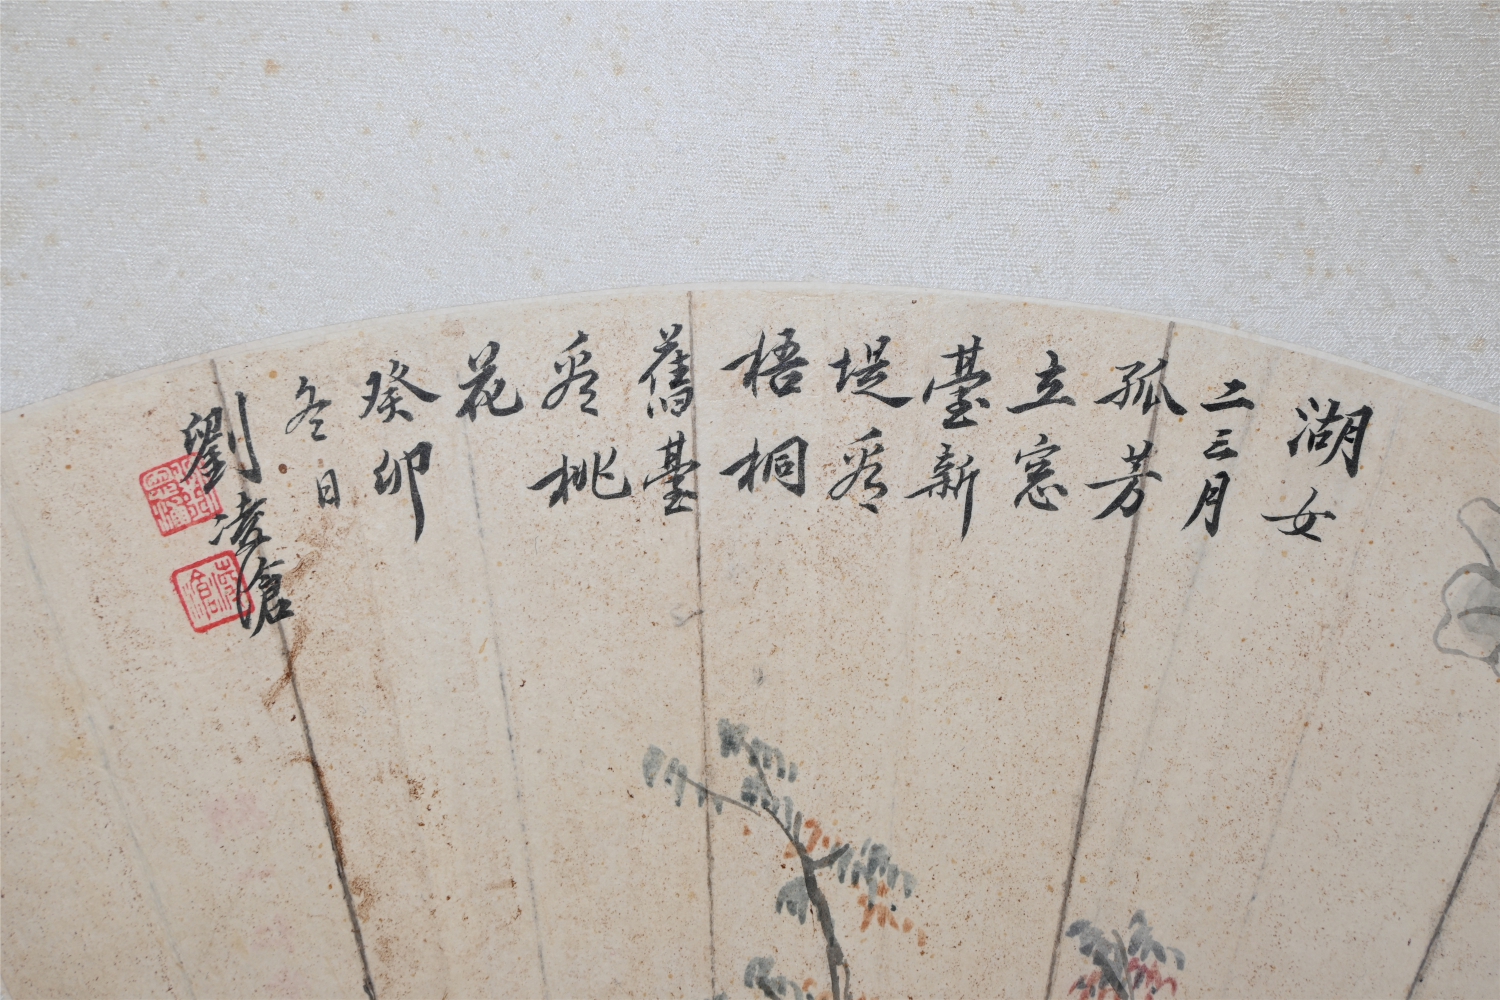 湖女
二三月
孤芳
立窓
臺新
堤看
梧桐
舊臺
看桃
花
癸卯
冬日
劉凌滄